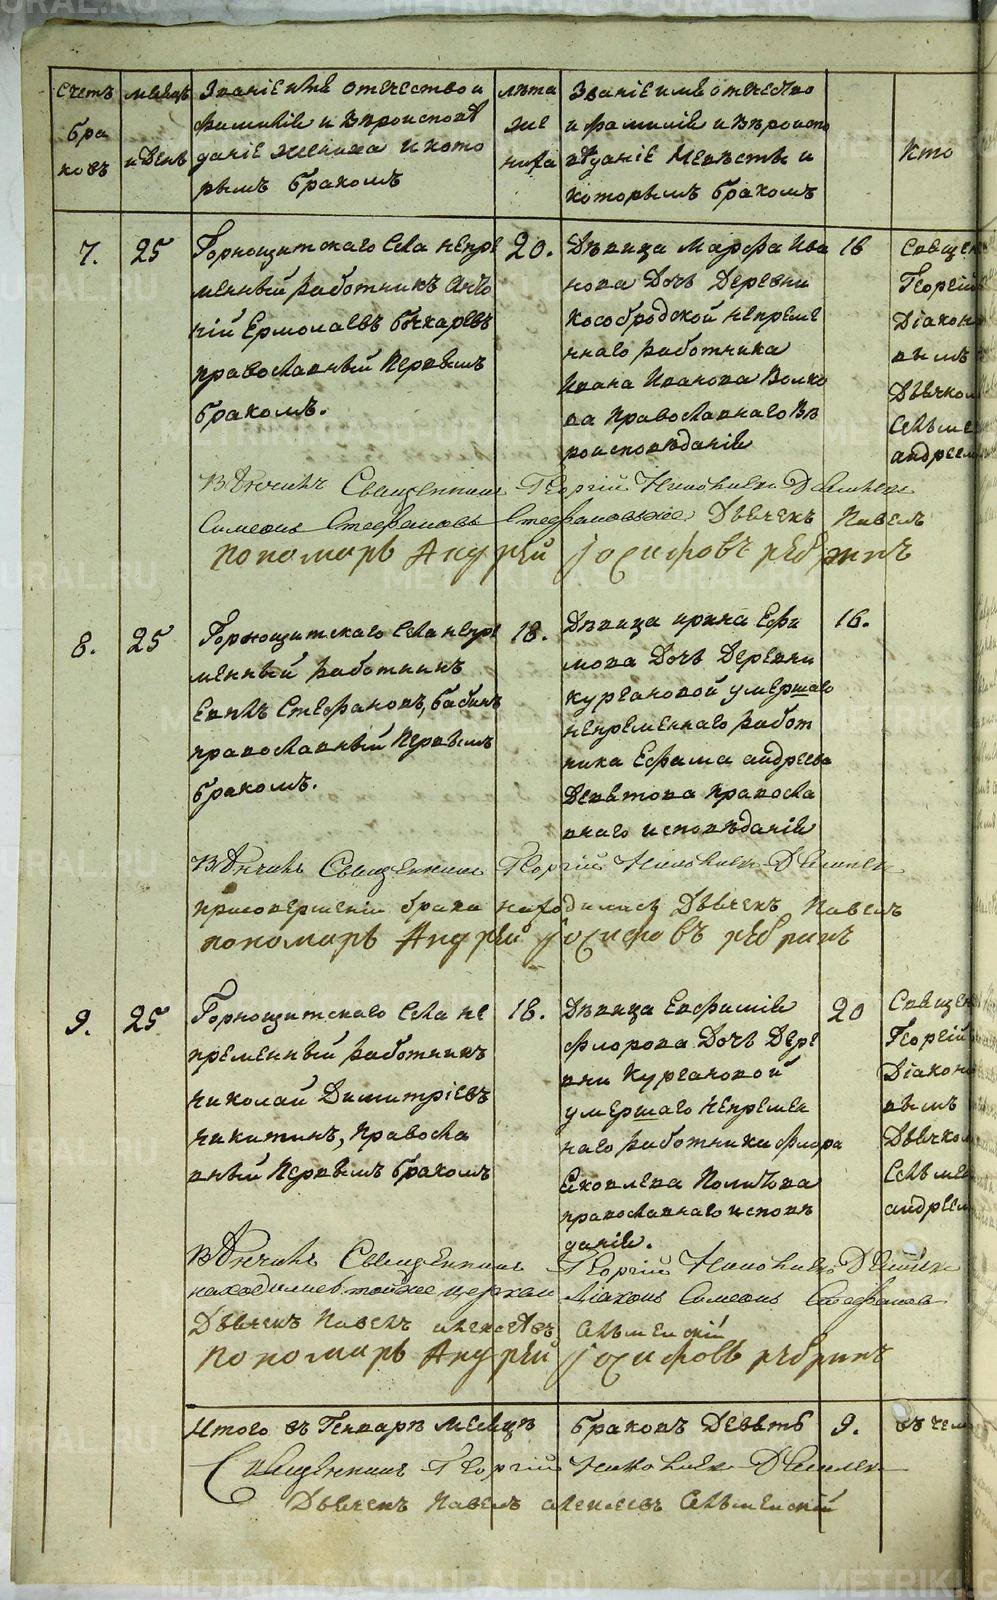 Счетъ бра ковъ
месяцъ и День
Званіе имя отчество и
фамилія и вѣроисповѣ
даніе жениха и кото
рымъ бракомъ
лѣта же ниха
Званіе имя отечество
и фамилія и вѣроиспо
вѣданіе Невѣсты и
которымъ бракомъ
Кто
7.
25
Горнощитскаго села непре
менный работникъ
ній Ермолаевъ Бочкаревъ
православный первымъ
бракомъ.
20.
Дѣвица Марфа Ива
нова Дочь Деревни
Кособродской непреме
ннаго работника
Ивана Иванова Волко
ва православнаго вѣ
роисповѣданія
16
Священ
Георгій
Діакон
вымъ
Дьячком
Сельме
андреем
Вѣнчалъ Священникъ Георгій
Симеонъ Стефановъ Дьячекъ Павелъ
пономарь Андрей Іосифовъ ребринъ
8.
25
Горнощитскаго села непре
менный работникъ
Стефановъ, бабинъ
православный первымъ
бракомъ.
18.
Дѣвица ирина Ефи
мова Дочь Деревни
кургановой умершаго
непременнаго работ
ника Ефима андреева
Девятова правосла
внаго исповѣданія
16.
Вѣнчалъ Священникъ Георгій
присовершеніи брака находились Дьячекъ Павелъ
пономарь Андрей Іосифовъ ребринъ
9.
25
Горнощитскаго села не
пременный работникъ
николай Димитріевъ
никитинъ, правосла
вный первымъ бракомъ
18.
Дѣвица Евфимія
флорова Дочь Дере
вни Кургановой
умершаго непремен
наго работника флора
Яковлева
православнаго исповѣ
данія.
20
Священ
Георгій
Діакон
вымъ
Дьячком
Сельме
андреем
Вѣнчалъ Священникъ Георгій
находились тойже церкви Діаконъ Симеонъ Стефановъ
Дьячекъ Павелъ алексѣевъ Сельменскій
пономарь Андрей Іосифовъ ребринъ
Итого въ Генварѣ месяцѣ браковъ Девять 9. въ чем
Священникъ Георгій
Дьячекъ Павелъ алексеевъ Сельменскій
METRIKI.GASO-URAL.RU